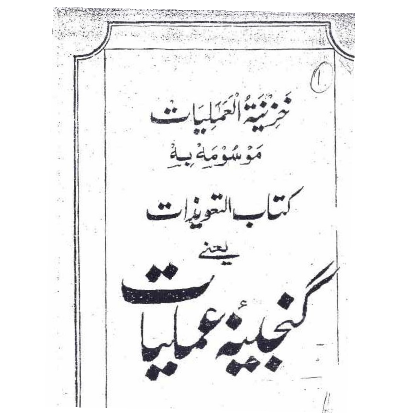 ۱
خَزِيْنَةُ الْعَمَلِيَات
مَوْسُوْمَهْ بِهْ
كتاب التعويذات
یعنے
گنجینۂ عملیات